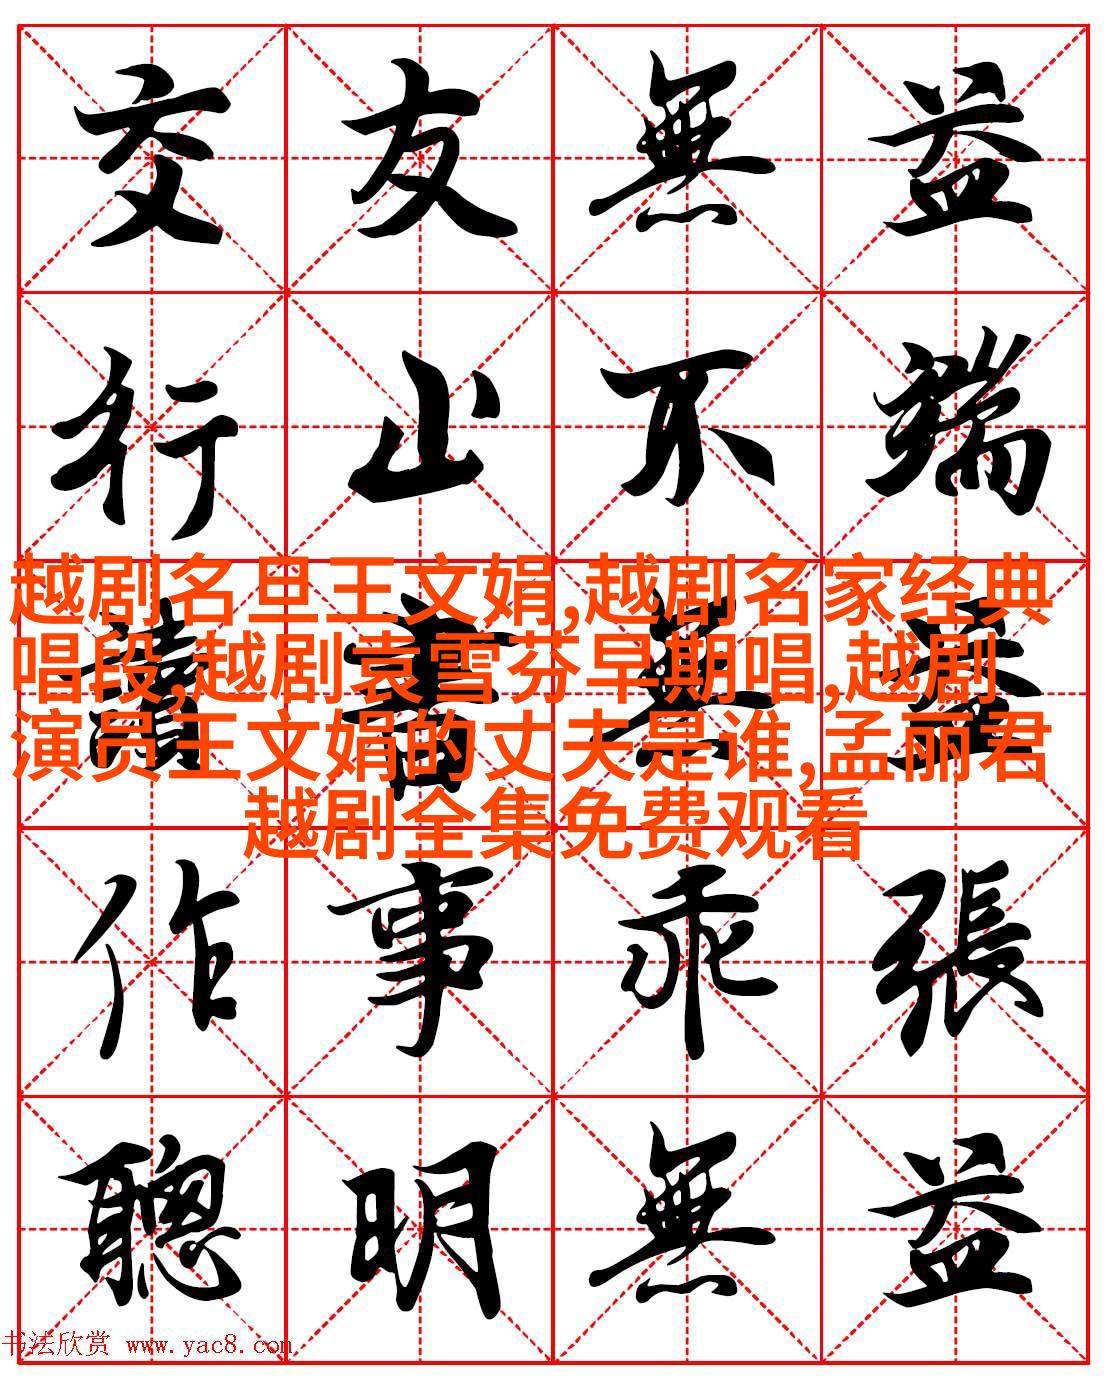 交友無益
行止不端
越剧名旦王文娟,越剧名家经典
唱段,越剧袁雪芬早期唱,越剧
演员王文娟的丈夫是谁,孟丽君
越剧全集免费观看
讀書無益
作事乖張
聰明無益
书法欣赏 www.yac8.com